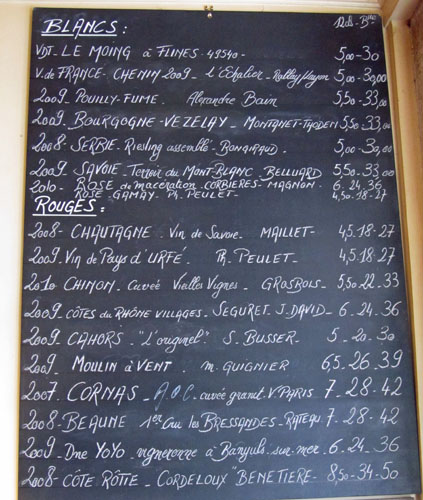 BLANCS:
VDT- LE MOING à FLINES -49540- 5,00-30
V. de FRANCE- CHENIN 2009 - L'Echalier - 5,00-30,00
2009- POUILLY-FUMÉ. Alexandre Bain 5,50-33,00
2009- BOURGOGNE-VEZELAY - MONTANET-THODEN 5,50-33,00
2008- SERBIE. Riesling assemblé - BONGIRAUD. 5,00-30,00
2009- SAVOIE - Terroir du MONT-BLANC - BELLUARD 5,50-33,00
2010- ROSÉ de macération CORBIÈRES - MAGNON - 6-24-36
ROSÉ GAMAY- Ph. PEULET- 4,50-18-27
ROUGES:
2008- CHAUTAGNE. Vin de Savoie. MAILLET- 4,5.18-27
2009. Vin de Pays d'URFÉ. PEULET- 4,5.18-27
2010. CHINON. Cuvée Vieilles Vignes - GROSBOIS - 5,50.22-33
2009. CÔTES du RHÔNE VILLAGES- SEGURET. J. DAVID- 6-24-36
2009. CAHORS - "L'originel" S. BUSSER. 5-20-30
2009. MOULIN à VENT. M. GUIGNIER 6,5-26-39
2007. CORNAS - A.O.C. cuvée granit. V. PARIS 7-28-42
2008- BEAUNE 1er Cru les BRESSANDES- RATEAU 7-28-42
2009. Dne YoYo - vigneronne à Banyuls-sur-mer 6-24-36
2008- CÔTE-RÔTIE - CORDELOUX "BENETIERE- 8,50-34-50